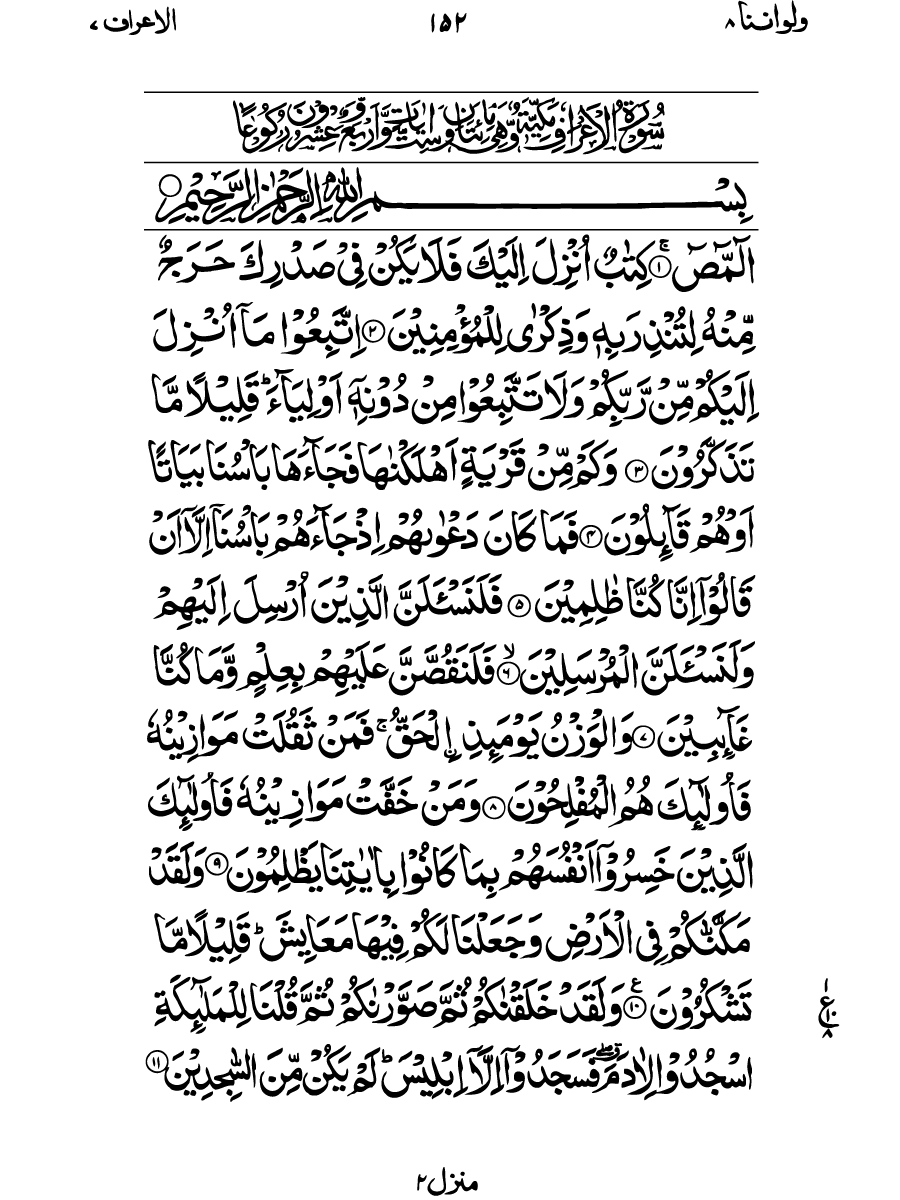 ولواننا ٨ ١٥٢ الاعراف ٧
سُوْرَةُ الْاَعْرَافِ مَكِّيَّةٌ وَّهِىَ مِائَتَانِ وَسِتُّ اٰيَاتٍ وَّاَرْبَعٌ وَّعِشْرُوْنَ رُكُوْعًا
بِسْمِ اللّٰهِ الرَّحْمٰنِ الرَّحِيْمِ ○
الٓمّٓصٓ ۚ ۝١ كِتٰبٌ اُنْزِلَ اِلَيْكَ فَلَا يَكُنْ فِىْ صَدْرِكَ حَرَجٌ
مِّنْهُ لِتُنْذِرَ بِهٖ وَذِكْرٰى لِلْمُؤْمِنِيْنَ ۝٢ اِتَّبِعُوْا مَآ اُنْزِلَ
اِلَيْكُمْ مِّنْ رَّبِّكُمْ وَلَا تَتَّبِعُوْا مِنْ دُوْنِهٖٓ اَوْلِيَآءَ ؕ قَلِيْلًا مَّا
تَذَكَّرُوْنَ ۝٣ وَكَمْ مِّنْ قَرْيَةٍ اَهْلَكْنٰهَا فَجَآءَهَا بَاْسُنَا بَيَاتًا
اَوْ هُمْ قَآئِلُوْنَ ۝٤ فَمَا كَانَ دَعْوٰىهُمْ اِذْ جَآءَهُمْ بَاْسُنَآ اِلَّآ اَنْ
قَالُوْٓا اِنَّا كُنَّا ظٰلِمِيْنَ ۝٥ فَلَنَسْـَٔلَنَّ الَّذِيْنَ اُرْسِلَ اِلَيْهِمْ
وَلَنَسْـَٔلَنَّ الْمُرْسَلِيْنَ ۙ ۝٦ فَلَنَقُصَّنَّ عَلَيْهِمْ بِعِلْمٍ وَّمَا كُنَّا
غَآئِبِيْنَ ۝٧ وَالْوَزْنُ يَوْمَئِذِ ۨالْحَقُّ ۚ فَمَنْ ثَقُلَتْ مَوَازِيْنُهٗ
فَاُولٰٓئِكَ هُمُ الْمُفْلِحُوْنَ ۝٨ وَمَنْ خَفَّتْ مَوَازِيْنُهٗ فَاُولٰٓئِكَ
الَّذِيْنَ خَسِرُوْٓا اَنْفُسَهُمْ بِمَا كَانُوْا بِاٰيٰتِنَا يَظْلِمُوْنَ ۝٩ وَلَقَدْ
مَكَّنّٰكُمْ فِى الْاَرْضِ وَجَعَلْنَا لَكُمْ فِيْهَا مَعَايِشَ ؕ قَلِيْلًا مَّا
تَشْكُرُوْنَ ۧ ۝١٠ وَلَقَدْ خَلَقْنٰكُمْ ثُمَّ صَوَّرْنٰكُمْ ثُمَّ قُلْنَا لِلْمَلٰٓئِكَةِ
١ ع ١٠ ٨
اسْجُدُوْا لِاٰدَمَ ۖ ق فَسَجَدُوْٓا اِلَّآ اِبْلِيْسَ ؕ لَمْ يَكُنْ مِّنَ السّٰجِدِيْنَ ۝١١
منزل ٢